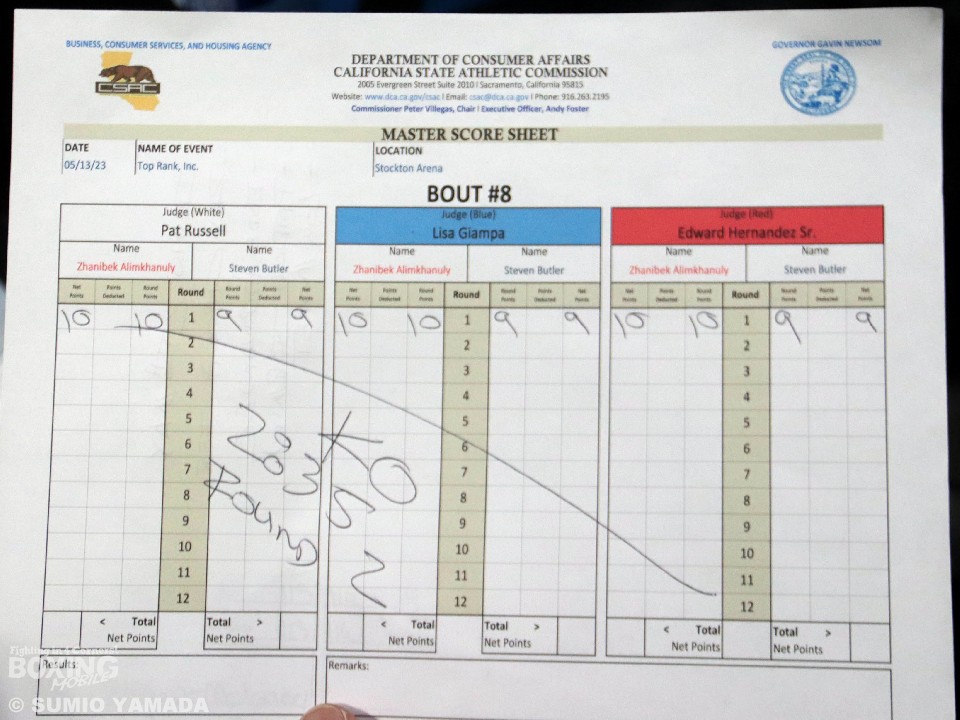 BUSINESS, CONSUMER SERVICES, AND HOUSING AGENCY
GOVERNOR GAVIN NEWSOM
CSAC
DEPARTMENT OF CONSUMER AFFAIRS
CALIFORNIA STATE ATHLETIC COMMISSION
2005 Evergreen Street Suite 2010 | Sacramento, California 95815
Website: www.dca.ca.gov/csac | Email: csac@dca.ca.gov | Phone: 916.263.2195
Commissioner Peter Villegas, Chair | Executive Officer, Andy Foster
MASTER SCORE SHEET
DATE NAME OF EVENT LOCATION
05/13/23 Top Rank, Inc. Stockton Arena
BOUT #8
Judge (White) Judge (Blue) Judge (Red)
Pat Russell Lisa Giampa Edward Hernandez Sr.
Name Name Name Name Name Name
Zhanibek Alimkhanuly Steven Butler Zhanibek Alimkhanuly Steven Butler Zhanibek Alimkhanuly Steven Butler
Net Points Points Deducted Round Points Round Round Points Points Deducted Net Points Net Points Points Deducted Round Points Round Round Points Points Deducted Net Points Net Points Points Deducted Round Points Round Round Points Points Deducted Net Points
10 10 1 9 9 10 10 1 9 9 10 10 1 9 9
2 2 2
3 3 3
4 4 4
5 5 5
6 6 6
7 7 7
8 8 8
9 9 9
10 10 10
11 11 11
12 12 12
KO
Round
< Total Total > < Total Total > < Total Total >
Net Points Net Points Net Points Net Points Net Points Net Points
Results: Remarks:
Fighting in t Connect
BOXING
MOBILE
© SUMIO YAMADA